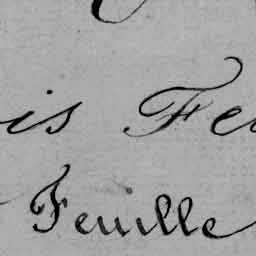 is Fe
Feuille